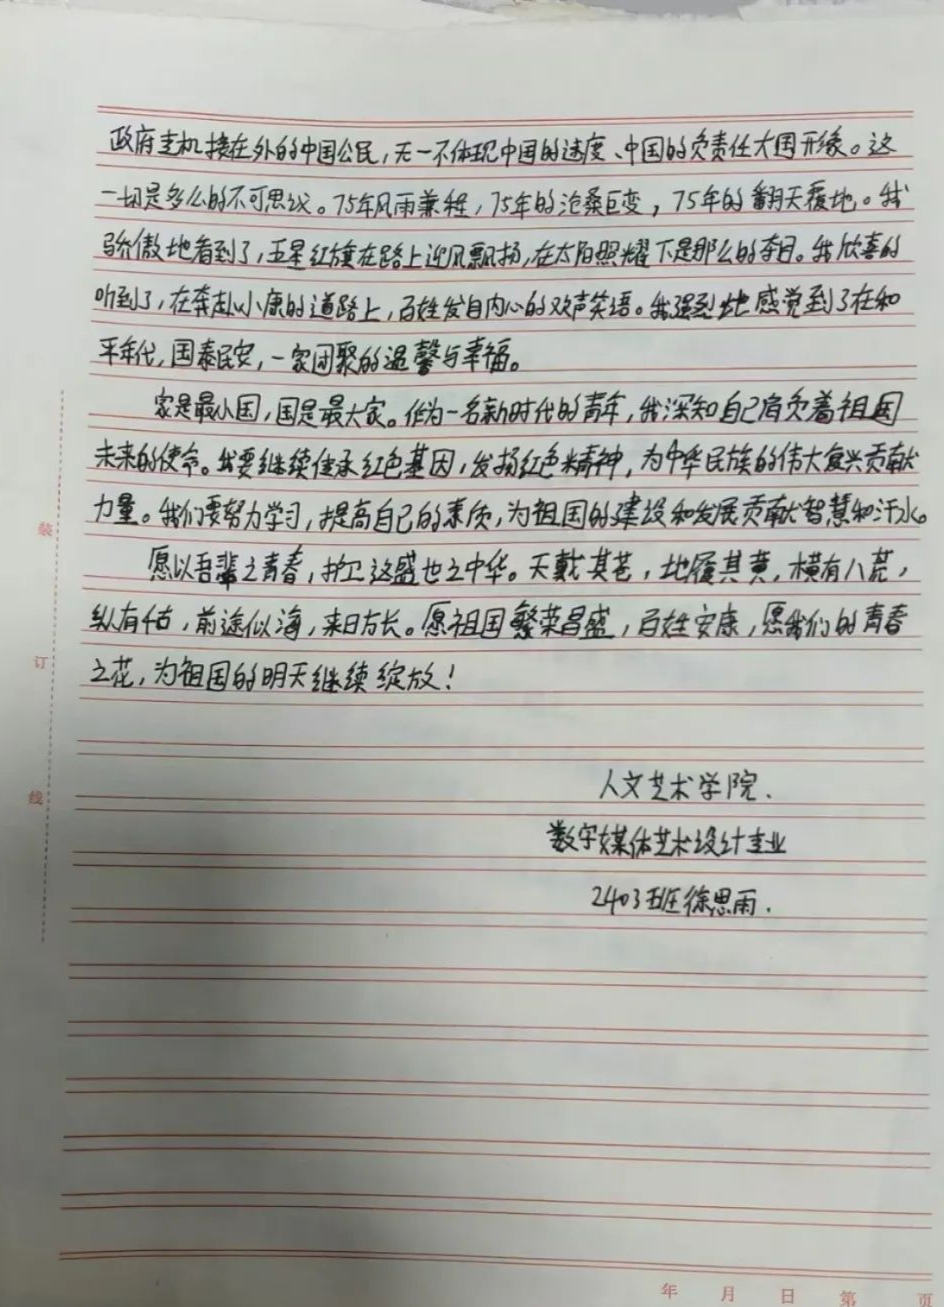 政府主机接在外的中国公民，无一不体现中国的速度、中国的负责任大国形像。这
一切是多么的不可思议。75年风雨兼程，75年的沧桑巨变，75年的翻天覆地。我
骄傲地看到了，五星红旗在路上迎风飘扬，在太阳照耀下是那么的夺目。我欣喜的
听到了，在奔赴小康的道路上，百姓发自内心的欢声笑语。我强烈地感觉到了在和
平年代，国泰民安，一家团聚的温馨与幸福。
家是最小国，国是最大家。作为一名新时代的青年，我深知自己肩负着祖国
未来的使命。我要继续传承红色基因，发扬红色精神，为中华民族的伟大复兴贡献
力量。我们要努力学习，提高自己的素质，为祖国的建设和发展贡献智慧和汗水。
愿以吾辈之青春，护卫这盛世之中华。天戴其苍，地履其黄，横有八荒，
纵有千古，前途似海，来日方长。愿祖国繁荣昌盛，百姓安康，愿我们的青春
之花，为祖国的明天继续绽放！
人文艺术学院.
数字媒体艺术设计专业
2403班徐思雨.
装
订
线
年 月 日 第 页